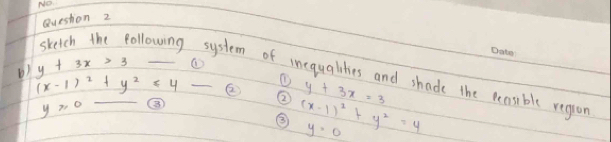 No.
Date
Question 2
Sketch the following system of inequalities and shade the feasible region
b) y + 3x > 3 — ①
(x - 1)² + y² ≤ 4 — ②
y ≥ 0 — ③
① y + 3x = 3
② (x - 1)² + y² = 4
③ y = 0